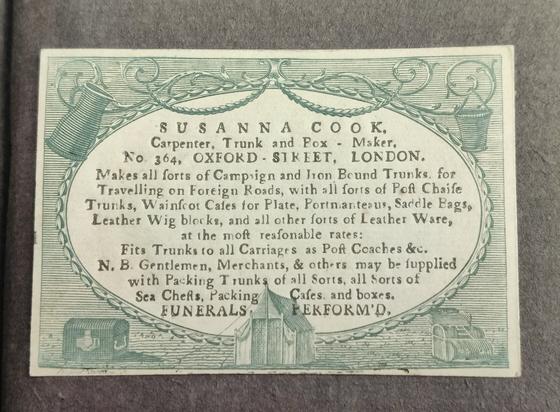 SUSANNA COOK,
Carpenter, Trunk and Box - Maker,
No. 364, OXFORD - STREET, LONDON.
Makes all ſorts of Campaign and Iron Bound Trunks, for
Travelling on Foreign Roads, with all ſorts of Poſt Chaiſe
Trunks, Wainſcot Caſes for Plate, Portmanteaus, Saddle Bags,
Leather Wig blocks, and all other ſorts of Leather Ware,
at the moſt reaſonable rates:
Fits Trunks to all Carriages as Poſt Coaches &c.
N. B. Gentlemen, Merchants, & others may be ſupplied
with Packing Trunks of all Sorts, all Sorts of
Sea Cheſts, Packing Caſes, and boxes.
FUNERALS PERFORM'D.